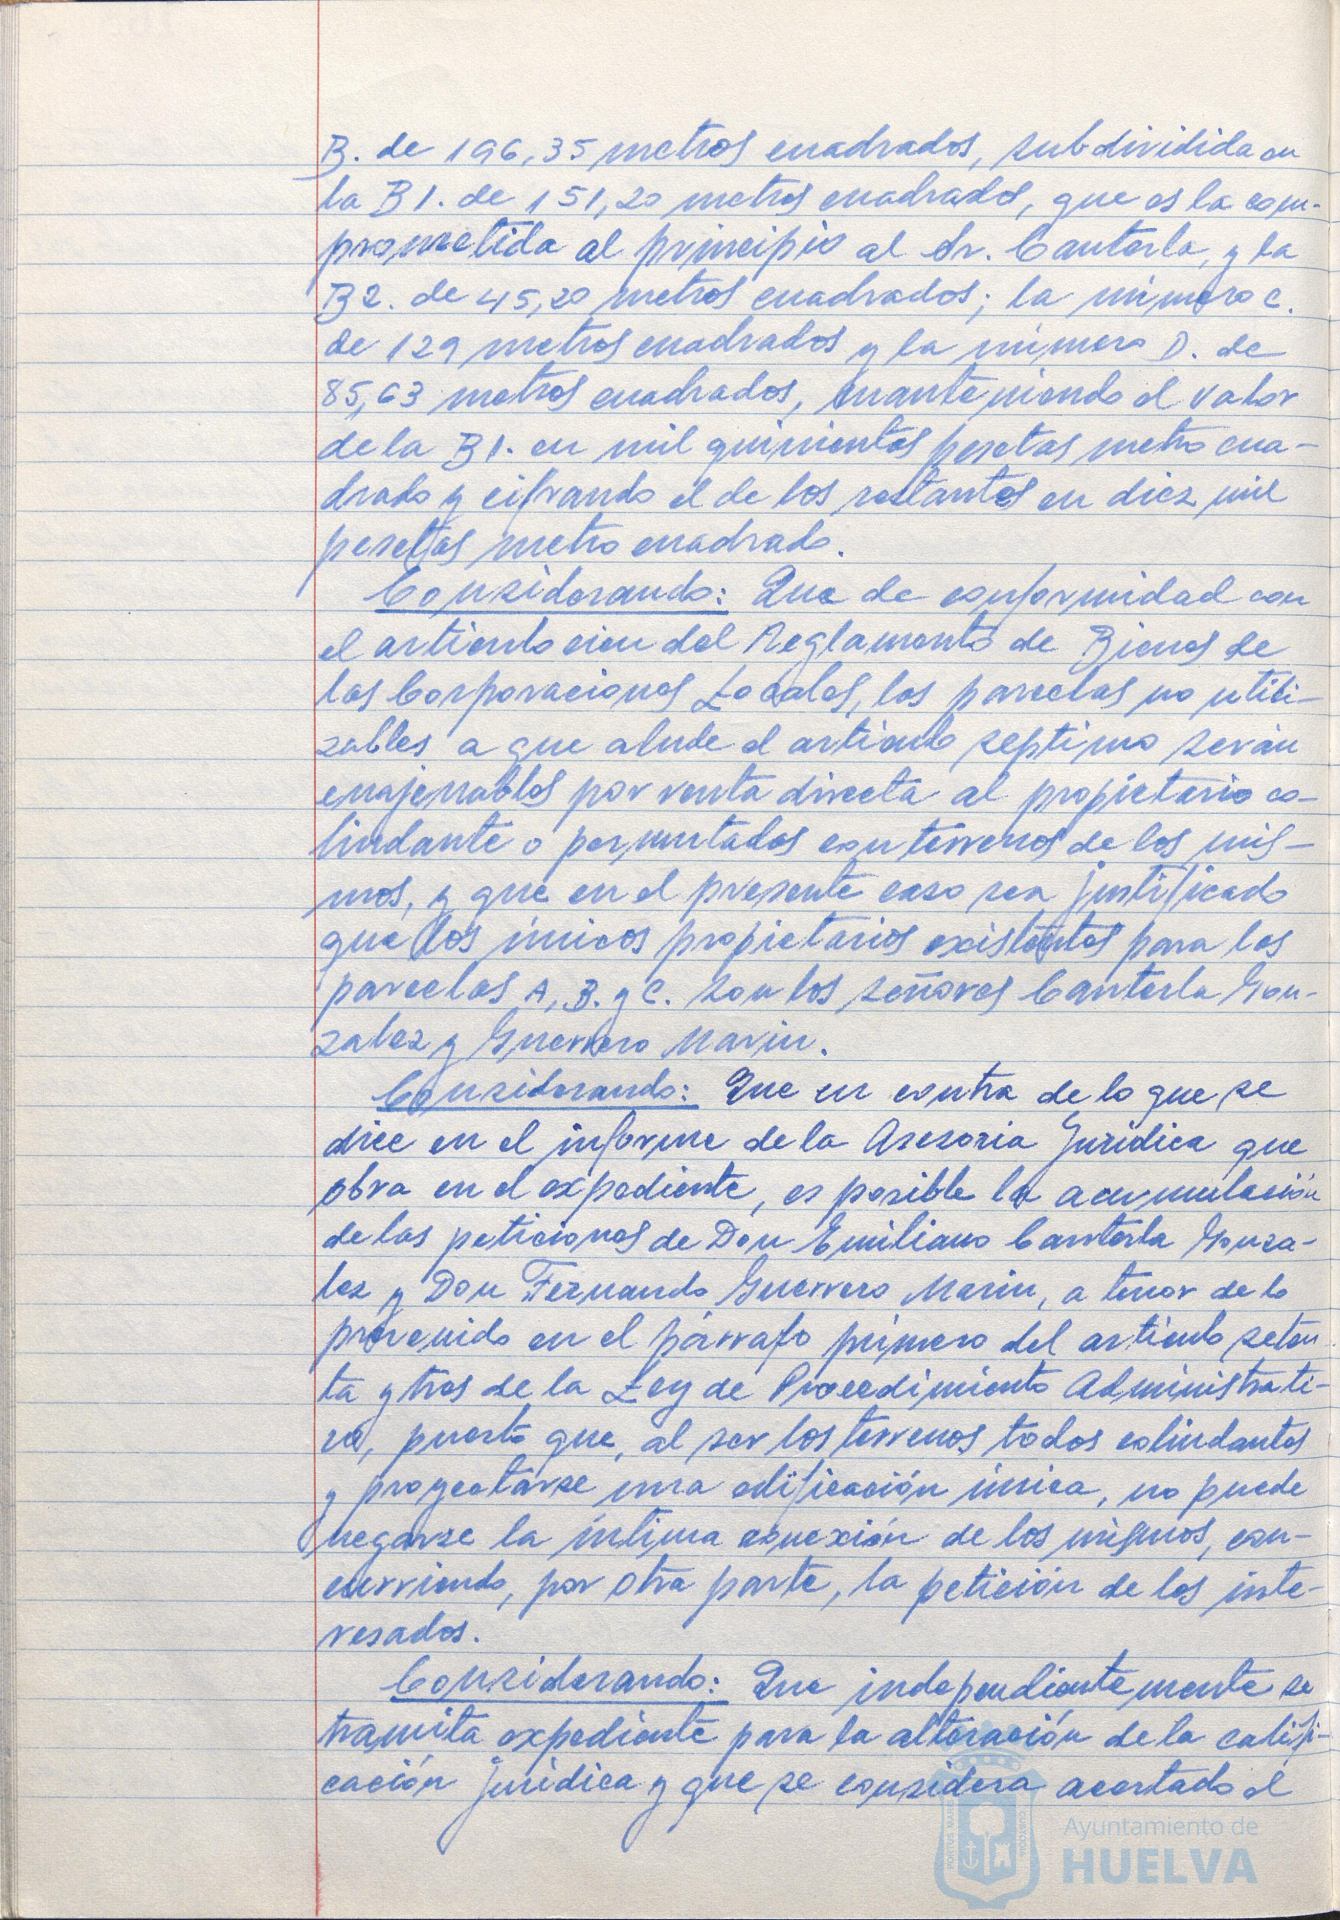 B. de 196,35 metros cuadrados, subdividida en
la B1. de 151,20 metros cuadrados, que es la com-
prometida al principio al Sr. Canterla, y la
B2. de 45,20 metros cuadrados; la número C.
de 129 metros cuadrados y la número D. de
85,63 metros cuadrados, manteniendo el valor
de la B1. en mil quinientas pesetas metro cua-
drado y cifrando el de los restantes en diez mil
pesetas metro cuadrado.
Considerando: Que de conformidad con
el artículo cien del Reglamento de Bienes de
las Corporaciones Locales, las parcelas no utili-
zables a que alude el artículo septimo serán
enajenables por venta directa al propietario co-
lindante o permutadas con terrenos de los mis-
mos, y que en el presente caso sea justificado
que los únicos propietarios existentes para las
parcelas A, B. y C. son los señores Canterla Gon-
zalez y Guerrero Marin.
Considerando: Que en contra de lo que se
dice en el informe de la Asesoria Jurídica que
obra en el expediente, es posible la acumulación
de las peticiones de Don Emiliano Canterla Gonza-
lez y Don Fernando Guerrero Marin, a tenor de lo
prevenido en el párrafo primero del artículo seten-
ta y tres de la Ley de Procedimiento Administrati-
vo, puesto que, al ser los terrenos todos colindantes
y proyectarse una edificación única, no puede
negarse la íntima conexión de los mismos, con-
curriendo, por otra parte, la petición de los inte-
resados.
Considerando: Que independientemente se
tramita expediente para la alteración de la califi-
cación jurídica y que se considera acertado el
Ayuntamiento de
HUELVA